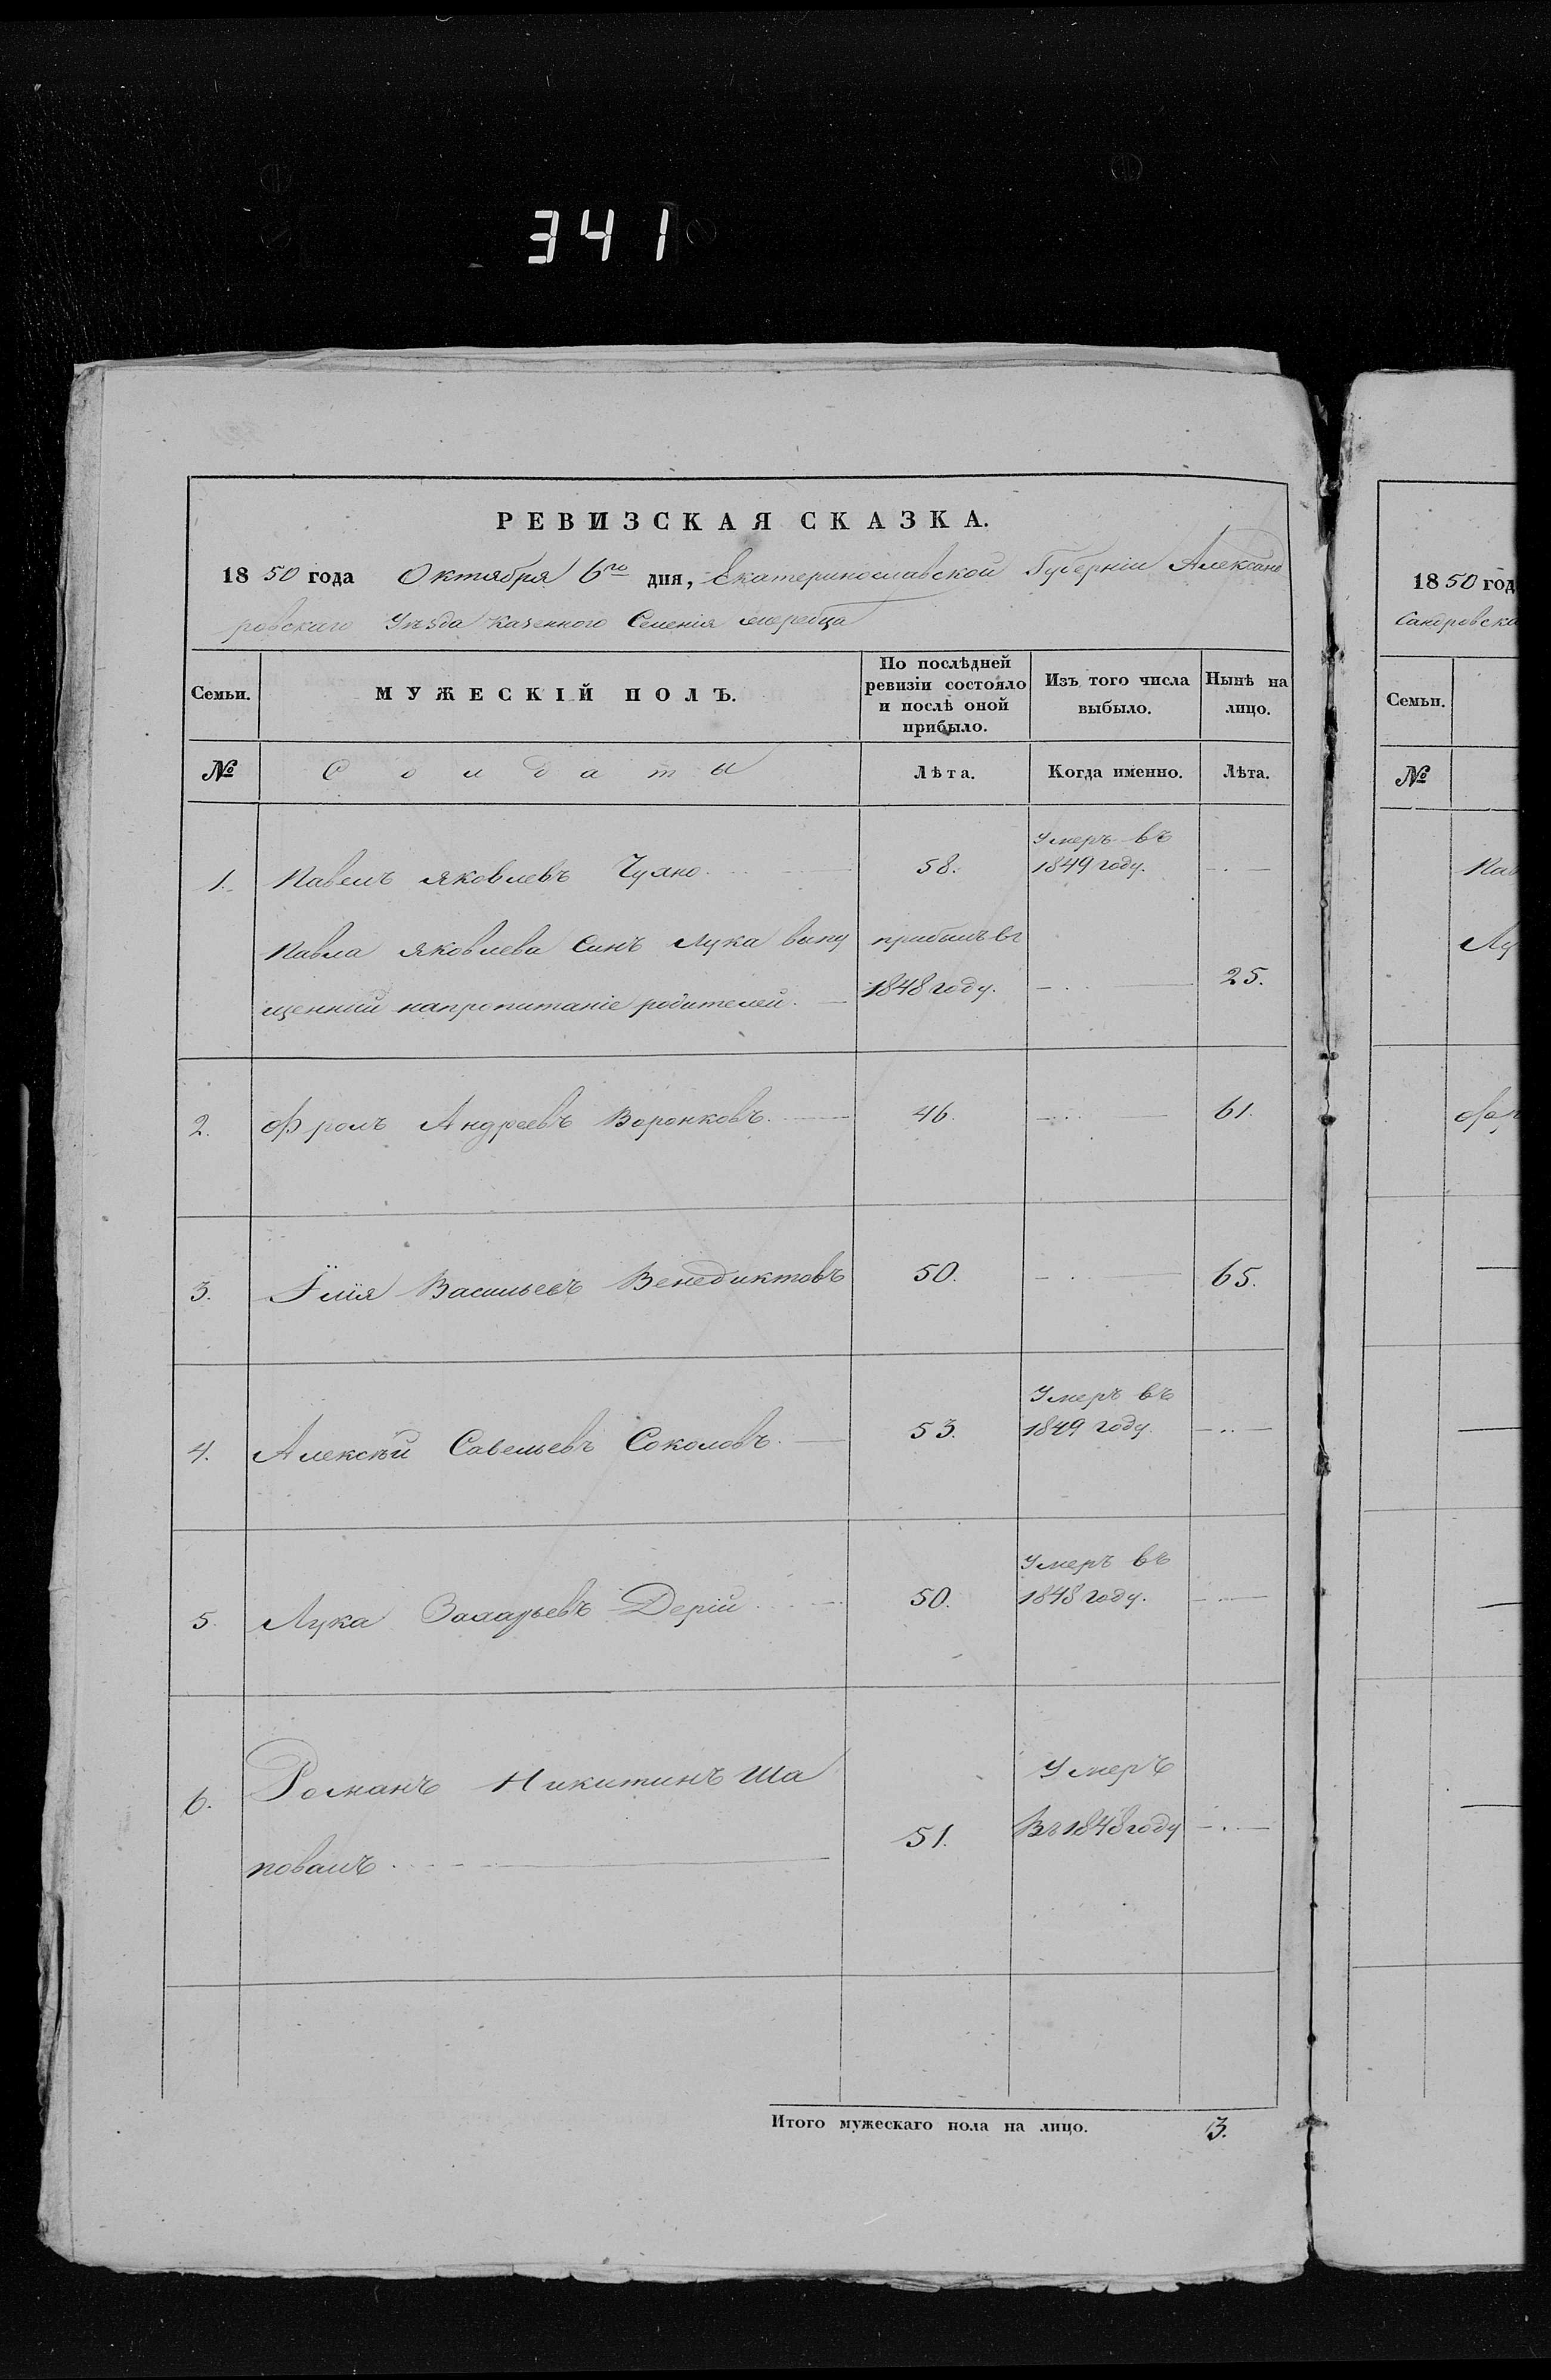 341
РЕВИЗСКАЯ СКАЗКА.
1850 года Октября 6го дня, Екатеринославской Губерніи Александ
ровскаго Уѣзда казенного Селенія жеребца
Семьи. МУЖЕСКІЙ ПОЛЪ. По послѣдней ревизіи состояло и послѣ оной прибыло. Изъ того числа выбыло. Нынѣ на лицо.
№ Солдаты Лѣта. Когда именно. Лѣта.
1. Павелъ Яковлевъ Чуяно 58. Умеръ въ 1849 году.
Павла Яковлева Синъ Лука випу прибылъ въ
щенний напропитаніе родителей. 1848 году. 25.
2. Фролъ Андреевъ Воронковъ 46. 61.
3. Їлія Васильевъ Венедиктовъ 50. 65.
4. Алексѣй Савельевъ Соколовъ 53. Умеръ въ 1849 году.
5. Лука Захарьевъ Дерій 50. Умеръ въ 1848 году.
6. Романъ Никитинъ Ша Умеръ
повалъ 51. Въ 1848 году
Итого мужескаго пола на лицо. 3.
1850 год
Сандровска
Семьи.
№
Пав
Лу